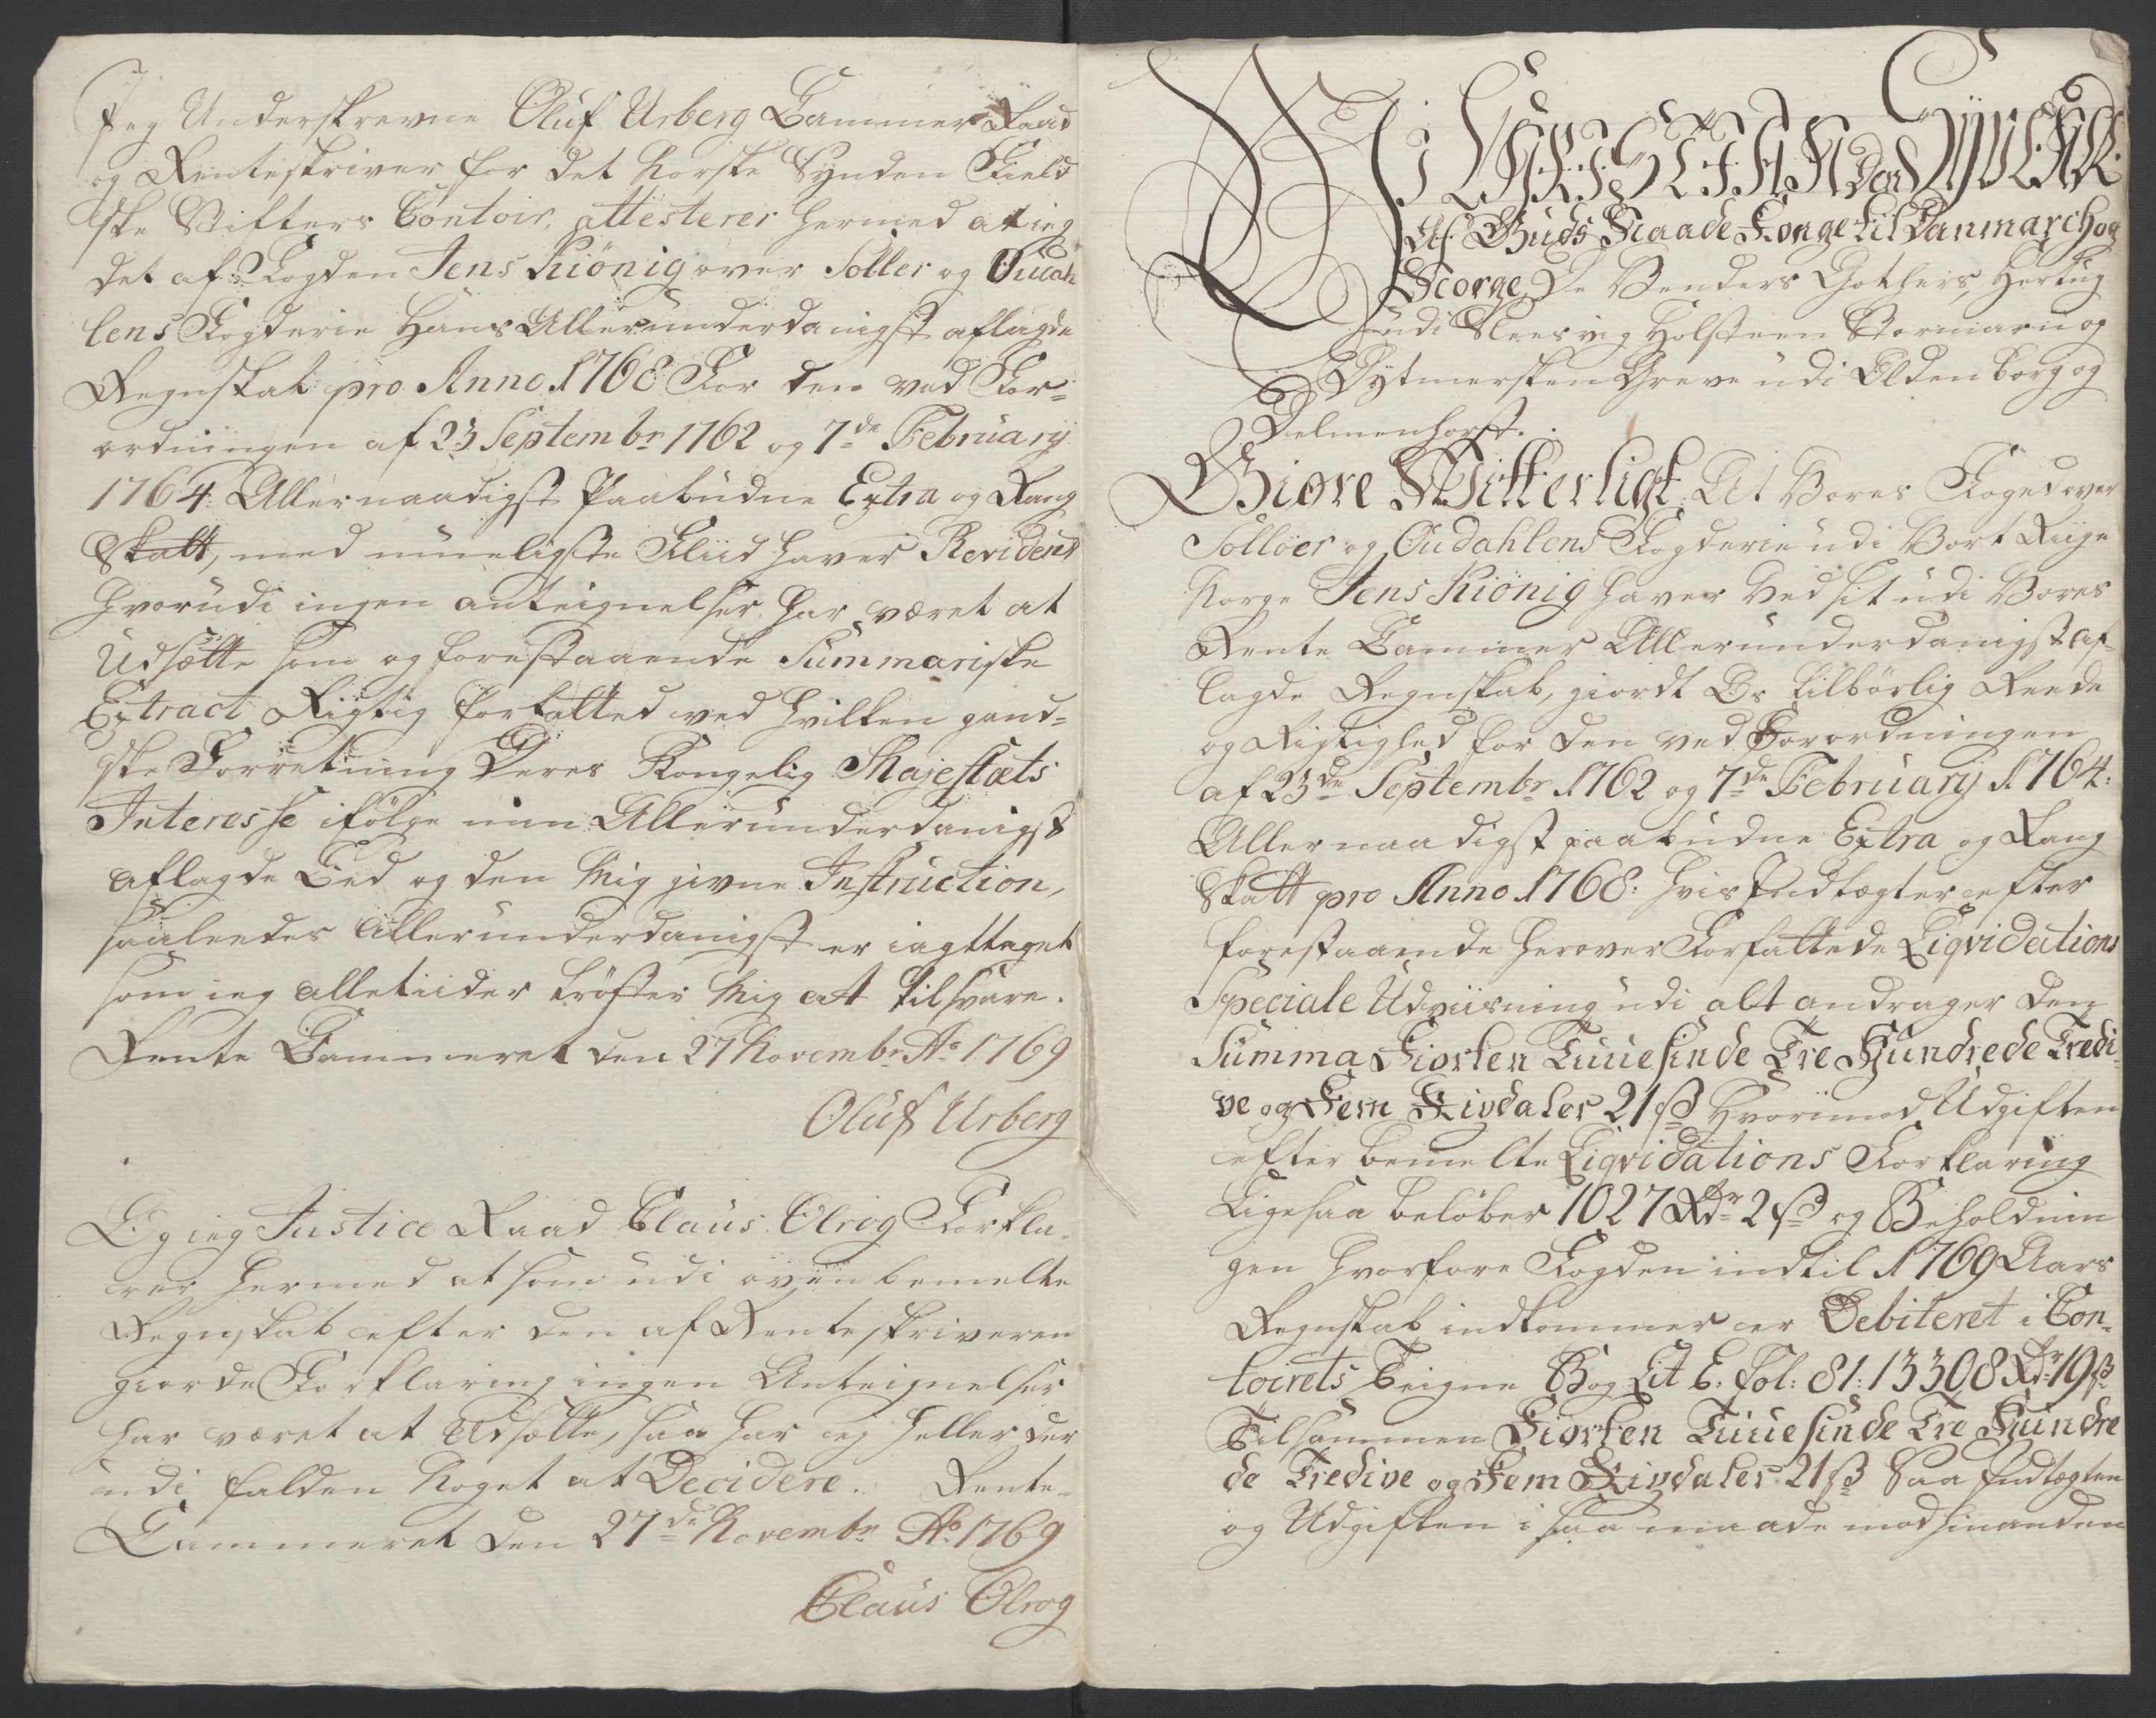 Jeg Underskrevne Oluf Urberg Cammer Raad
og Renteskriver for det Norske Synden Field
ske Stifters Contoir, attesterer hermed at ieg
det af Fogden Jens Kiönig over Soller og Oudah
lens Fogderie Hans Allerunderdanigst aflagde
Regnskab pro Anno 1768 For den ved For=
ordningen af 23 Septembr 1762 og 7de February
1764. Allernaadigst Paabudne Extra og Rang
Skatt, med mueligste Fliid haver Revideret
hvorudi ingen anteignelser har været at
Udsætte som og forestaaende Summariske
Extract Rigtig forfatted ved hvilken gand=
ske Forretning Deres Kongelig Majestæts
Interesse ifölge min Allerunderdanigst
aflagde Eed og den Mig givne Instruction,
saaleedes allerunderdanigst er iagttaget
som ieg alletiider tröster Mig at tilsvare.
Rente Cammeret den 27 Novembr Ao 1769
Oluf Urberg
Og ieg Justice Raad Claus Olrog Forkla-
rer hermed at som udi ovenbemelte
Regnskab efter den af Renteskriveren
giorde Forklaring ingen Anteignelser
har været at Udsætte, saa har ieg heller der
udi falden Noget at Decidere. Rente-
Cammeret den 27de Novembr Ao 1769
Claus Olrog
Wi CHRISTIAN den SYVENDE
Af Guds Naade Konge til Danmarch og
Norge De Venders Gothers, Hertug
udi Sleesvig Holsteen Stormarn og
Dytmersken Greve udi Oldenborg og
Delmenhorst.
Giøre Witterligt, At Vores Foged over
Solløer og Oudahlens Fogderie udi Vort Riige
Norge Jens Kiönig haver Ved sit udi Vores
Rente Cammer Allerunderdanigst af-
lagde Regnskab, giordt Os tilbörlig Reede
og Rigtighed for den ved Forordningen
af 23de Septembr 1762 og 7de February 1764.
Allernaadigst paabudne Extra og Rang
Skatt pro Anno 1768. Hvis Indtægter efter
forestaaende herover Forfattede Liqvidations
Speciale Udviisning udi alt andrager den
Summa Fiorten Tuuesinde Tre Hundrede Tredi-
ve og Fem Rixdaler 21 ß Hvorimod Udgiften
efter bemelte Liqvidations Forklaring
Ligesaa beløber 1027 Rdr 2 ß og Beholdnin
gen hvorfore Fogden indtil 1769 Aars
Regnskab indkommer er Debiteret i Con-
toirets Teigne Bog Lit E. fol: 81: 13308 Rdr 19 ß
Tilsammen Fiorten Tuuesinde Tre Hundre
de Tredive og Fem Rixdaler 21 ß Saa Indtægten
og Udgiften i saa maade mod hinanden